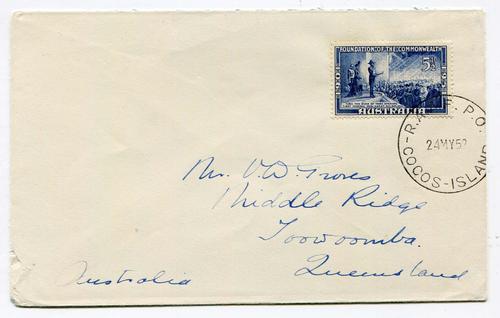 FOUNDATION OF THE COMMONWEALTH
1901 5½D 1951
AUSTRALIA
R.A.A.F. P.O.
24MY52
COCOS-ISLAND
Mr. V.W. Groves
Middle Ridge
Toowoomba.
Queensland
Australia